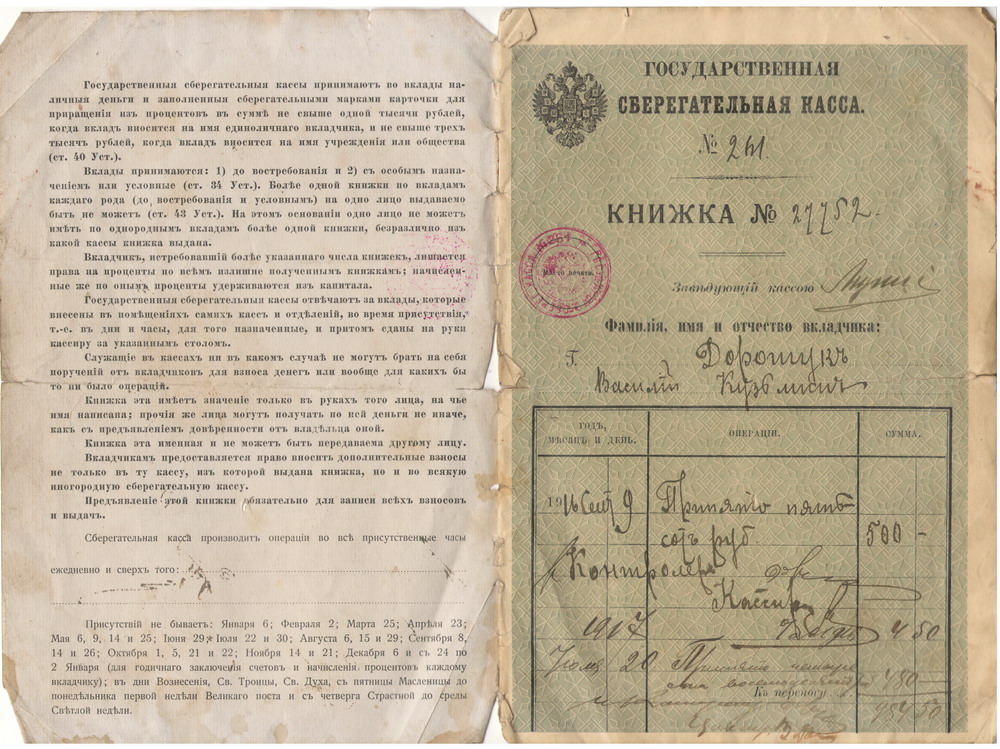 Государственныя сберегательныя кассы принимаютъ во вклады на-
личныя деньги и заполненныя сберегательными марками карточки для
приращенія изъ процентовъ въ суммѣ не свыше одной тысячи рублей,
когда вкладъ вносится на имя единоличнаго вкладчика, и не свыше трехъ
тысячъ рублей, когда вкладъ вносится на имя учрежденія или общества
(ст. 40 Уст.).
Вклады принимаются: 1) до востребованія и 2) съ особымъ назна-
ченіемъ или условные (ст. 34 Уст.). Болѣе одной книжки по вкладамъ
каждаго рода (до востребованія и условнымъ) на одно лицо выдаваемо
быть не можетъ (ст. 43 Уст.). На этомъ основаніи одно лицо не можетъ
имѣть по однороднымъ вкладамъ болѣе одной книжки, безразлично изъ
какой кассы книжка выдана.
Вкладчикъ, истребовавшій болѣе указаннаго числа книжекъ, лишается
права на проценты по всѣмъ излишне полученнымъ книжкамъ; начислен-
ные же по онымъ проценты удерживаются изъ капитала.
Государственныя сберегательныя кассы отвѣчаютъ за вклады, которые
внесены въ помѣщеніяхъ самихъ кассъ и отдѣленій, во время присутствія,
т.-е. въ дни и часы, для того назначенные, и притомъ сданы на руки
кассиру за указаннымъ столомъ.
Служащіе въ кассахъ ни въ какомъ случаѣ не могутъ брать на себя
порученій отъ вкладчиковъ для взноса денегъ или вообще для какихъ бы
то ни было операцій.
Книжка эта имѣетъ значеніе только въ рукахъ того лица, на чье
имя написана; прочія же лица могутъ получать по ней деньги не иначе,
какъ съ предъявленіемъ довѣренности отъ владѣльца оной.
Книжка эта именная и не можетъ быть передаваема другому лицу.
Вкладчикамъ предоставляется право вносить дополнительные взносы
не только въ ту кассу, изъ которой выдана книжка, но и во всякую
иногородную сберегательную кассу.
Предъявленіе этой книжки обязательно для записи всѣхъ взносовъ
и выдачъ.
Сберегательная касса производитъ операціи во всѣ присутственные часы
ежедневно и сверхъ того:
Присутствій не бываетъ: Января 6; Февраля 2; Марта 25; Апрѣля 23;
Мая 6, 9, 14 и 25; Іюня 29; Іюля 22 и 30; Августа 6, 15 и 29; Сентября 8,
14 и 26; Октября 1, 5, 21 и 22; Ноября 14 и 21; Декабря 6 и съ 24 по
2 Января (для годичнаго заключенія счетовъ и начисленія процентовъ каждому
вкладчику); въ дни Вознесенія, Св. Троицы, Св. Духа, съ пятницы Масленицы до
понедѣльника первой недѣли Великаго поста и съ четверга Страстной до среды
Свѣтлой недѣли.
ГОСУДАРСТВЕННАЯ
СБЕРЕГАТЕЛЬНАЯ КАССА.
№ 261.
КНИЖКА № 27752.
Мѣсто печати.
Завѣдующій кассою
Фамилія, имя и отчество вкладчика:
Г. Дорошукъ
Василій Кузьмичъ
ГОДЪ, МѢСЯЦЪ И ДЕНЬ. ОПЕРАЦІИ. СУММА.
1916 Сент 9 Принято пять
сотъ руб. 500 -
Контролеръ
Кассиръ
1917 4 50
20 Принято четыре
480 -
Къ переносу 984 50